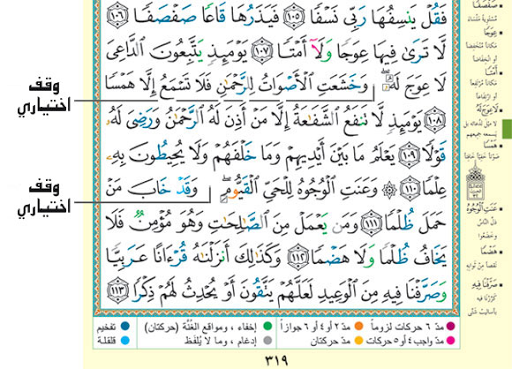 فَقُلْ يَنسِفُهَا رَبِّي نَسْفًا ١٠٥ فَيَذَرُهَا قَاعًا صَفْصَفًا ١٠٦
لَّا تَرَىٰ فِيهَا عِوَجًا وَلَآ أَمْتًا ١٠٧ يَوْمَئِذٍ يَتَّبِعُونَ ٱلدَّاعِيَ
لَا عِوَجَ لَهُۥ وَخَشَعَتِ ٱلْأَصْوَاتُ لِلرَّحْمَٰنِ فَلَا تَسْمَعُ إِلَّا هَمْسًا
وقف
اختياري
١٠٨ يَوْمَئِذٍ لَّا تَنفَعُ ٱلشَّفَٰعَةُ إِلَّا مَنْ أَذِنَ لَهُ ٱلرَّحْمَٰنُ وَرَضِيَ لَهُۥ
قَوْلًا ١٠٩ يَعْلَمُ مَا بَيْنَ أَيْدِيهِمْ وَمَا خَلْفَهُمْ وَلَا يُحِيطُونَ بِهِۦ
عِلْمًا ١١٠ ۞ وَعَنَتِ ٱلْوُجُوهُ لِلْحَيِّ ٱلْقَيُّومِ وَقَدْ خَابَ مَنْ
وقف
اختياري
حَمَلَ ظُلْمًا ١١١ وَمَن يَعْمَلْ مِنَ ٱلصَّٰلِحَٰتِ وَهُوَ مُؤْمِنٌ فَلَا
يَخَافُ ظُلْمًا وَلَا هَضْمًا ١١٢ وَكَذَٰلِكَ أَنزَلْنَٰهُ قُرْءَانًا عَرَبِيًّا
وَصَرَّفْنَا فِيهِ مِنَ ٱلْوَعِيدِ لَعَلَّهُمْ يَتَّقُونَ أَوْ يُحْدِثُ لَهُمْ ذِكْرًا ١١٣
مدّ ٦ حركات لزوماً مدّ ٢ أو ٤ أو ٦ جوازاً إخفاء، ومواقع الغُنَّة (حركتان) تفخيم
مدّ واجب ٤ أو ٥ حركات مدّ حركتان إدغام، وما لا يُلفَظ قلقلة
٣١٩